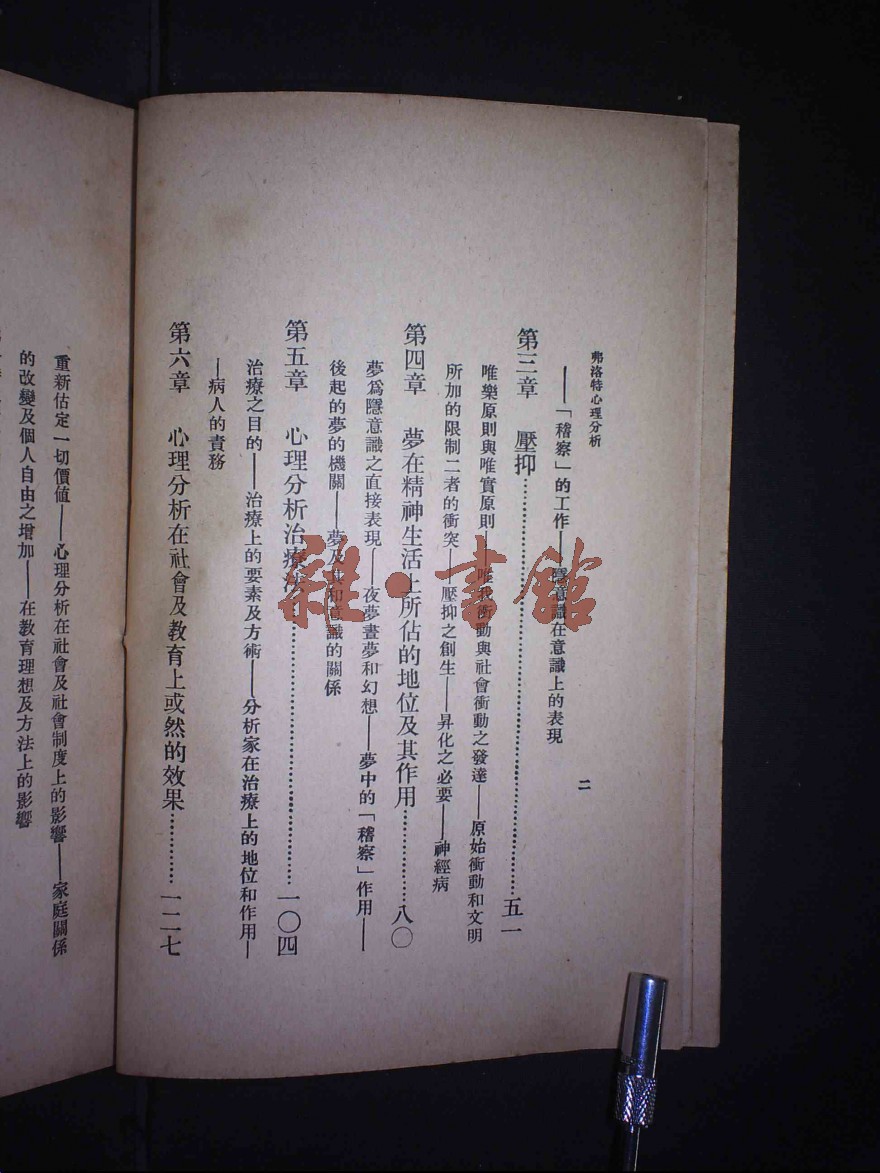 弗洛特心理分析
二
——「稽察」的工作——隱意識在意識上的表現
第三章　壓抑……五一
唯樂原則與唯實原則——唯我衝動與社會衝動之發達——原始衝動和文明
所加的限制二者的衝突——壓抑之創生——昇化之必要——神經病
第四章　夢在精神生活上所佔的地位及其作用……八〇
夢爲隱意識之直接表現——夜夢晝夢和幻想——夢中的「稽察」作用——
後起的夢的機關——夢及其和意識的關係
第五章　心理分析治療法……一〇四
治療之目的——治療上的要素及方術——分析家在治療上的地位和作用—
—病人的責務
第六章　心理分析在社會及教育上或然的效果……一二七
重新估定一切價值——心理分析在社會及社會制度上的影響——家庭關係
的改變及個人自由之增加——在教育理想及方法上的影響
雜·書館